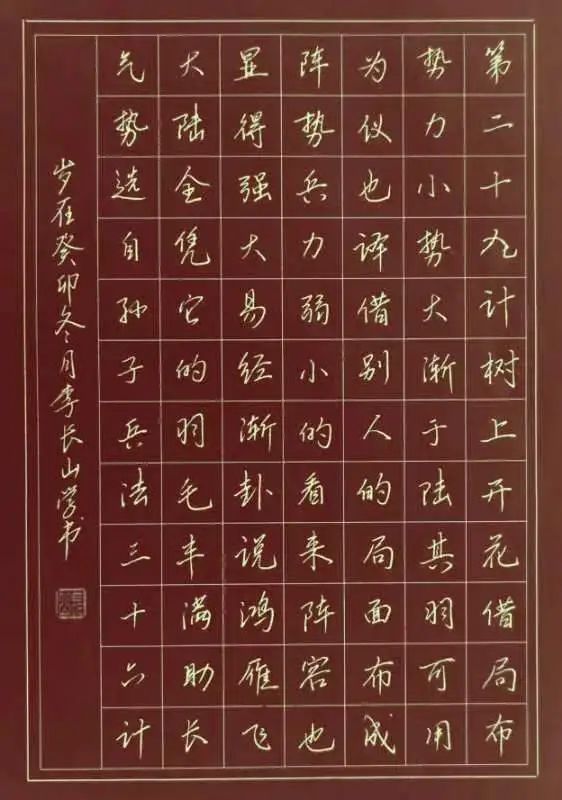 第二十九计树上开花借局布
势力小势大渐于陆其羽可用
为仪也译借别人的局面布成
阵势兵力弱小的看来阵容也
显得强大易经渐卦说鸿雁飞
大陆全凭它的羽毛丰满助长
气势选自孙子兵法三十六计
岁在癸卯冬月李长山学书